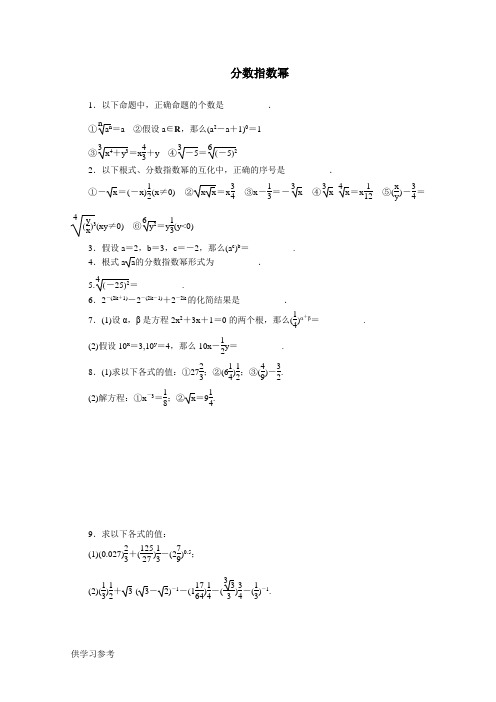 分数指数幂
1．以下命题中，正确命题的个数是__________．
①ⁿ√(aⁿ)＝a　②假设 a∈R，那么(a²－a＋1)⁰＝1
③³√(x⁴＋y³)＝x^(4/3)＋y　④³√(－5)＝⁶√((－5)²)
2．以下根式、分数指数幂的互化中，正确的序号是__________．
①－√x＝(－x)^(1/2)(x≠0)　②√(x√x)＝x^(3/4)　③x^(－1/3)＝－³√x　④³√x ⁴√x＝x^(1/12)　⑤(x/y)^(－3/4)＝
⁴√((y/x)³)(xy≠0)　⑥⁶√(y²)＝y^(1/3)(y<0)
3．假设 a＝2，b＝3，c＝－2，那么(aᶜ)ᵇ＝__________.
4．根式 a√a的分数指数幂形式为__________．
5.⁴√((－25)²)＝__________.
6．2^(－(2k＋1))－2^(－(2k－1))＋2^(－2k)的化简结果是__________．
7．(1)设 α，β 是方程 2x²＋3x＋1＝0 的两个根，那么(1/4)^(α＋β)＝__________.
(2)假设 10ˣ＝3,10ʸ＝4，那么 10x－1/2y＝__________.
8．(1)求以下各式的值：①27^(2/3)；②(6 1/4)^(1/2)；③(4/9)^(－3/2).
(2)解方程：①x⁻³＝1/8；②√x＝9^(1/4).
9．求以下各式的值：
(1)(0.027)^(2/3)＋(125/27)^(1/3)－(2 7/9)^0.5；
(2)(1/3)^(1/2)＋√3·(√3－√2)⁻¹－(1 17/64)^(1/4)－(³√3/3)^(3/4)－(1/3)⁻¹.
供学习参考